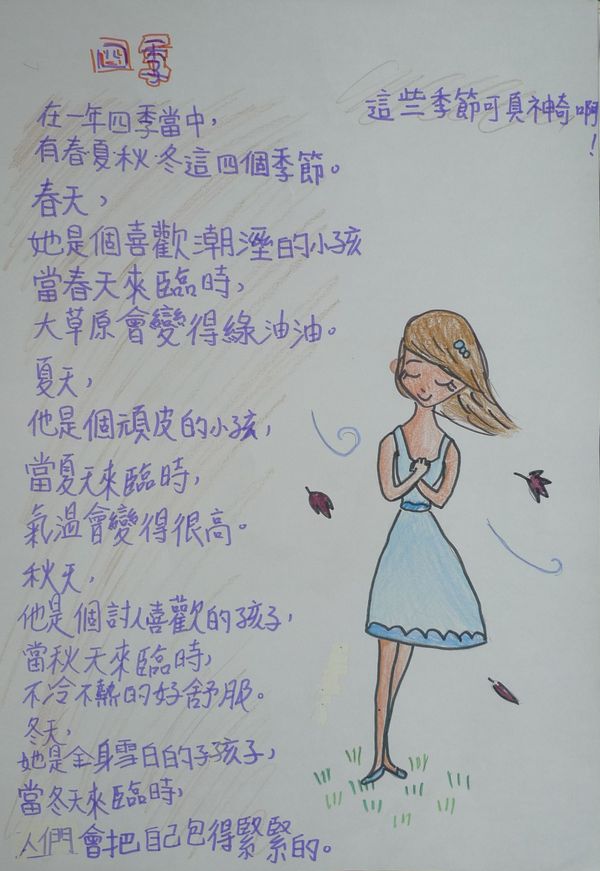 四季
在一年四季當中，
有春夏秋冬這四個季節。
春天，
她是個喜歡潮溼的小孩
當春天來臨時，
大草原會變得綠油油。
夏天，
他是個頑皮的小孩，
當夏天來臨時，
氣溫會變得很高。
秋天，
他是個討人喜歡的孩子，
當秋天來臨時，
不冷不熱的好舒服。
冬天，
她是全身雪白的孩子，
當冬天來臨時，
人們會把自己包得緊緊的。
這些季節可真神奇啊！